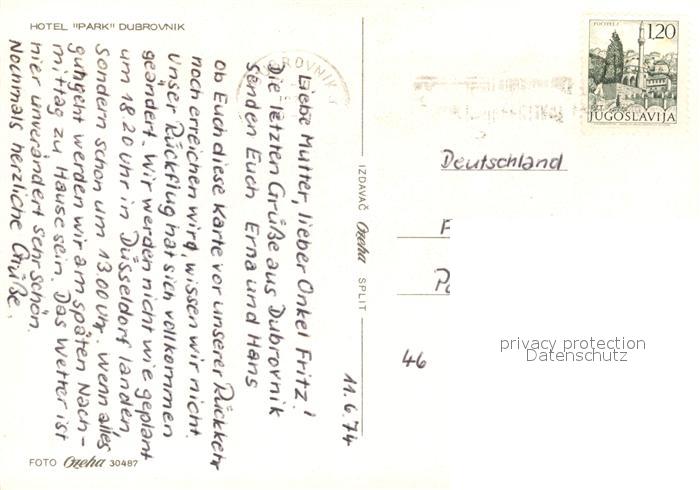 HOTEL "PARK" DUBROVNIK
11.6.74
Liebe Mutter, lieber Onkel Fritz!
Die letzten Grüße aus Dubrovnik
senden Euch Erna und Hans
Ob Euch diese Karte vor unserer Rückkehr
noch erreichen wird, wissen wir nicht.
Unser Rückflug hat sich vollkommen
geändert. Wir werden nicht wie geplant
um 18.20 Uhr in Düsseldorf landen,
sondern schon um 13.00 Uhr. Wenn alles
gutgeht werden wir am späten Nach-
mittag zu Hause sein. Das Wetter ist
hier unverändert sehr schön.
Nochmals herzliche Grüße.
FOTO Ozeha 30487
IZDAVAČ Ozeha SPLIT
POČITELJ
1,20
PTT
JUGOSLAVIJA
Deutschland
46
privacy protection
Datenschutz